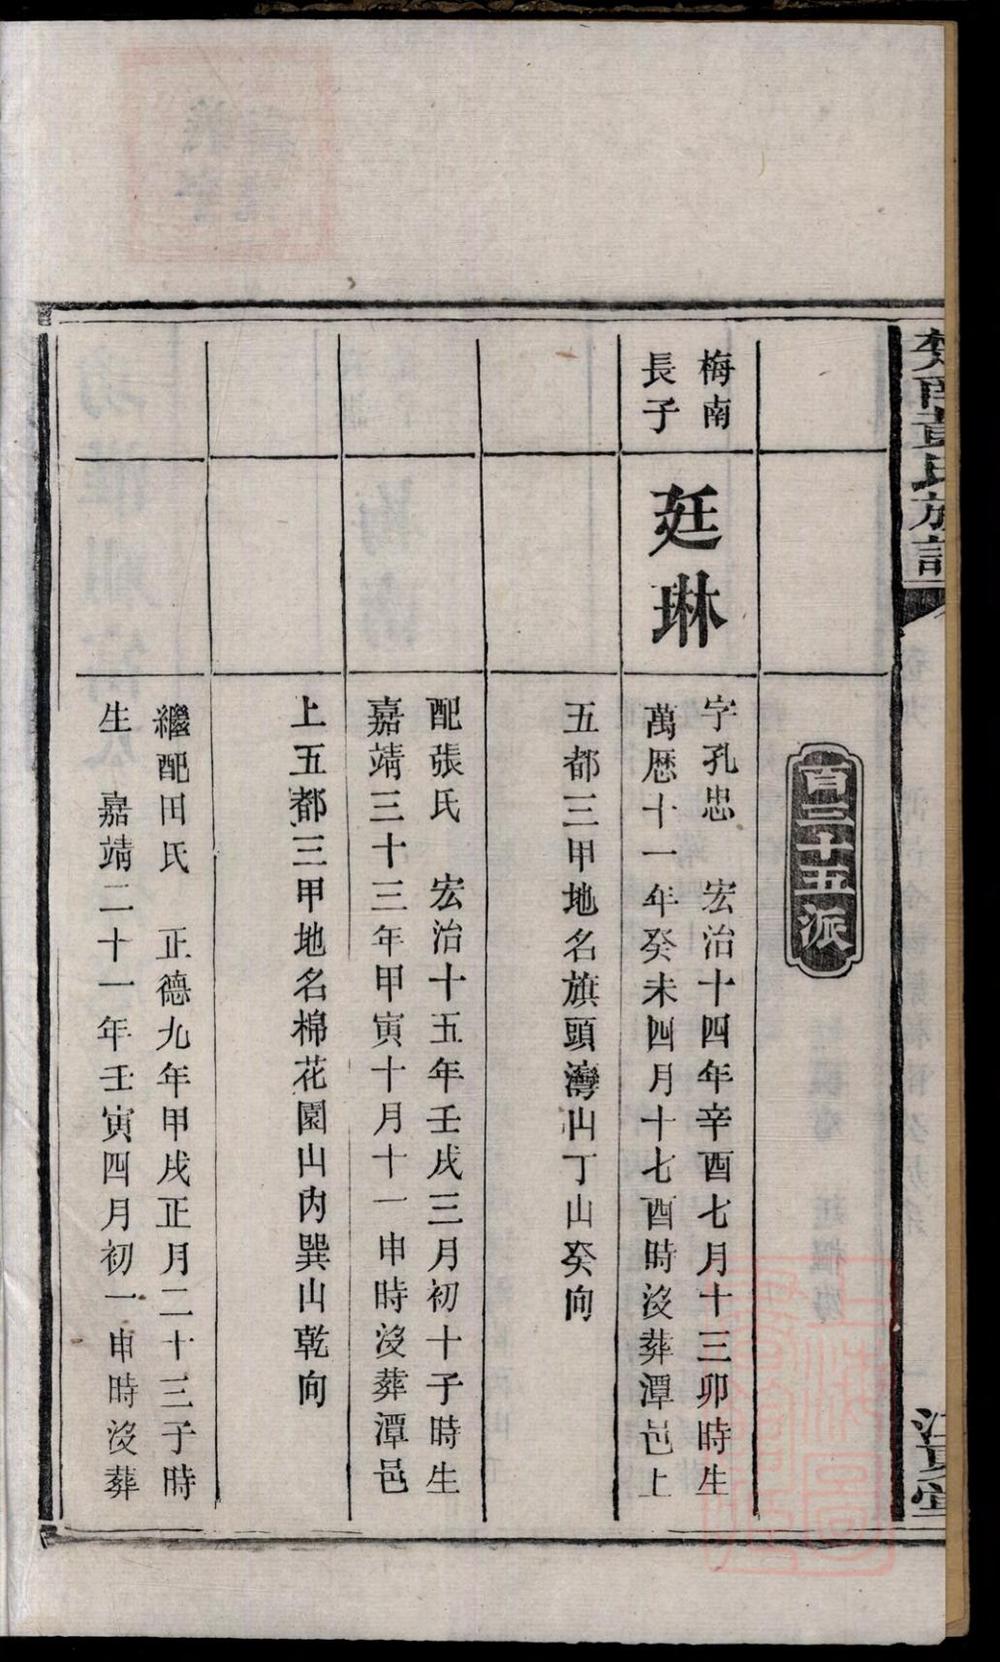 百三十五派
梅南
長子
廷琳
字孔忠　宏治十四年辛酉七月十三卯時生
萬歷十一年癸未四月十七酉時沒葬潭邑上
五都三甲地名旗頭灣山丁山癸向
配張氏　宏治十五年壬戌三月初十子時生
嘉靖三十三年甲寅十月十一申時沒葬潭邑
上五都三甲地名棉花園山內巽山乾向
繼配田氏　正德九年甲戌正月二十三子時
生　嘉靖二十一年壬寅四月初一申時沒葬